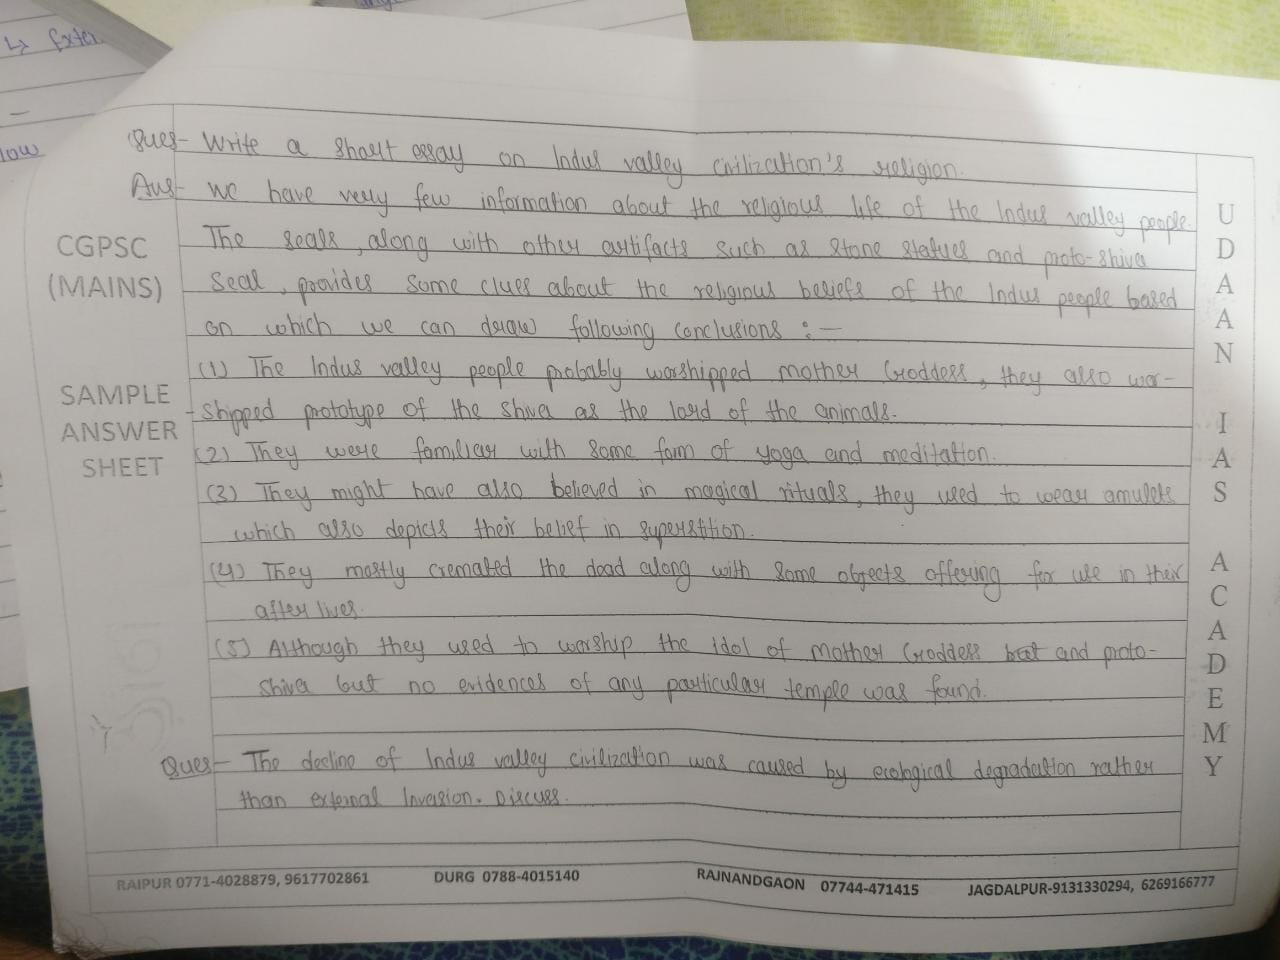 ↳ Exte
low
Ques- Write a short essay on Indus valley civilization's religion.
Ans- We have very few information about the religious life of the Indus valley people.
The seals, along with other artifacts such as stone statues and proto-shiva
seal, provides some clues about the religious beliefs of the Indus people based
on which we can draw following conclusions :—
(1) The Indus valley people probably worshipped mother Goddess, they also wor-
-shipped prototype of the shiva as the lord of the animals.
(2) They were familiar with some form of yoga and meditation.
(3) They might have also believed in magical rituals, they used to wear amulets
which also depicts their belief in superstition.
(4) They mostly cremated the dead along with some objects offering for use in their
after lives.
(5) Although they used to worship the idol of mother Goddess and proto-
shiva but no evidences of any particular temple was found.
Ques- The decline of Indus valley civilization was caused by ecological degradation rather
than external Invasion. Discuss.
CGPSC
(MAINS)
SAMPLE
ANSWER
SHEET
UDAAN IAS ACADEMY
RAIPUR 0771-4028879, 9617702861 DURG 0788-4015140 RAJNANDGAON 07744-471415 JAGDALPUR-9131330294, 6269166777